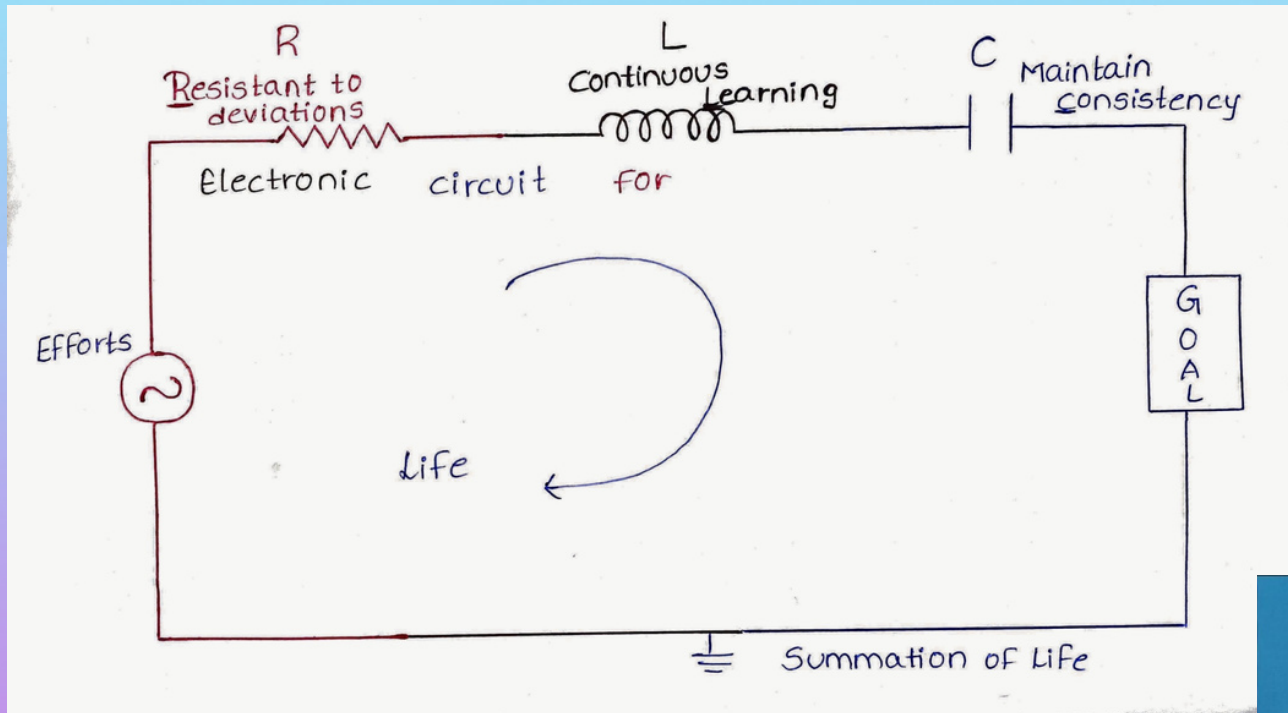 R
Resistant to
deviations
L
Continuous
Learning
C
Maintain
consistency
Electronic circuit for
Efforts
GOAL
Life
Summation of Life